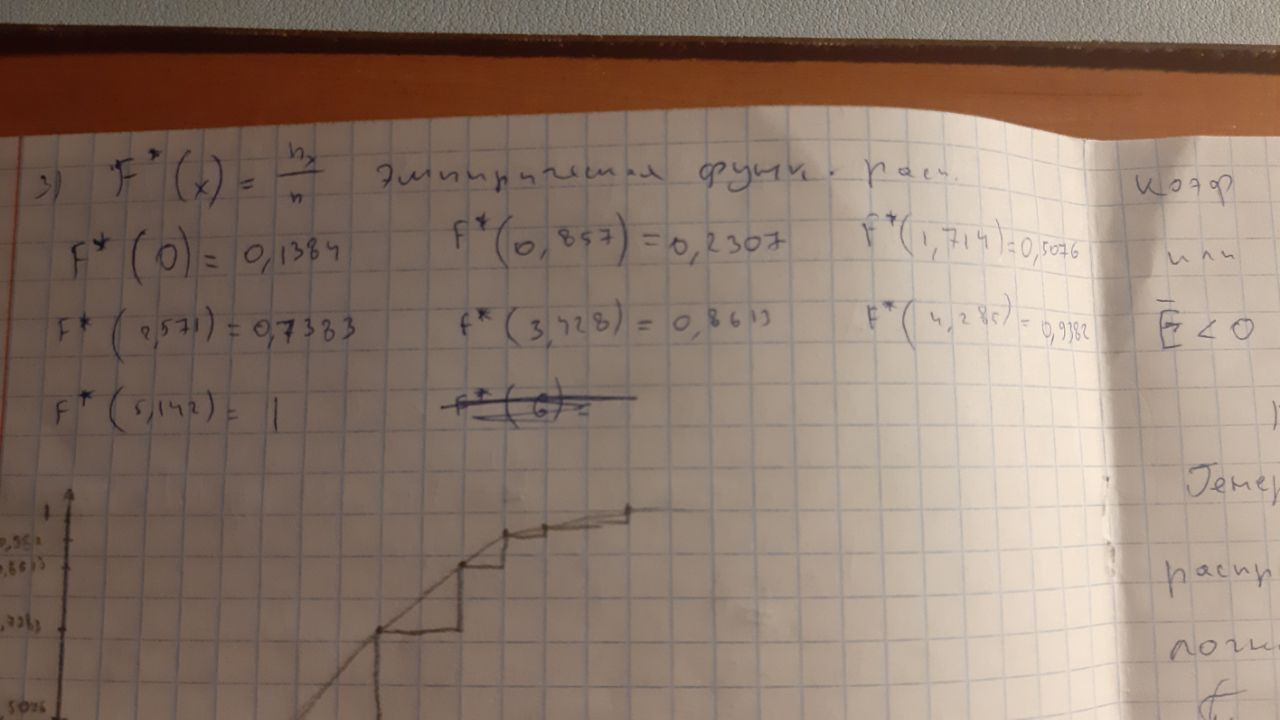 3) F*(x) = nx/n эмпирическая функ. расп.
F*(0) = 0,1384 F*(0,857) = 0,2307 F*(1,714) = 0,5076
F*(2,571) = 0,7383 F*(3,428) = 0,8613 F*(4,285) = 0,9382
F*(5,142) = 1 F*(6) =
1
0,8613
5076
коэф
или
E < 0
Генер
распр
логн